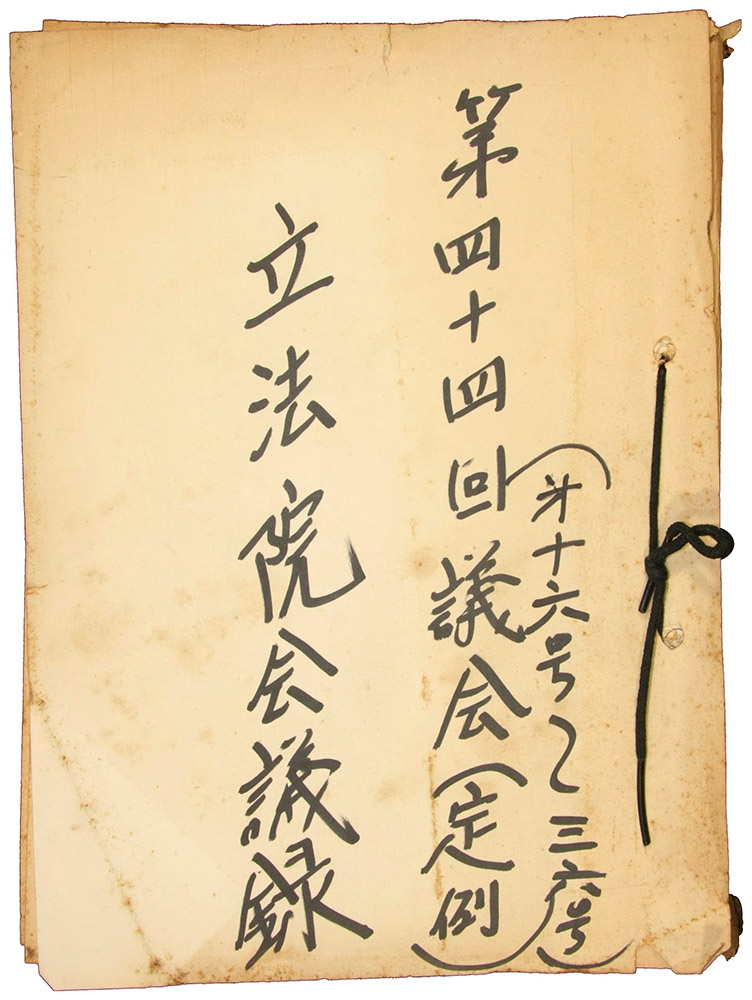 第四十四回議会(定例)
(第十六号~三六号)
立法院会議録